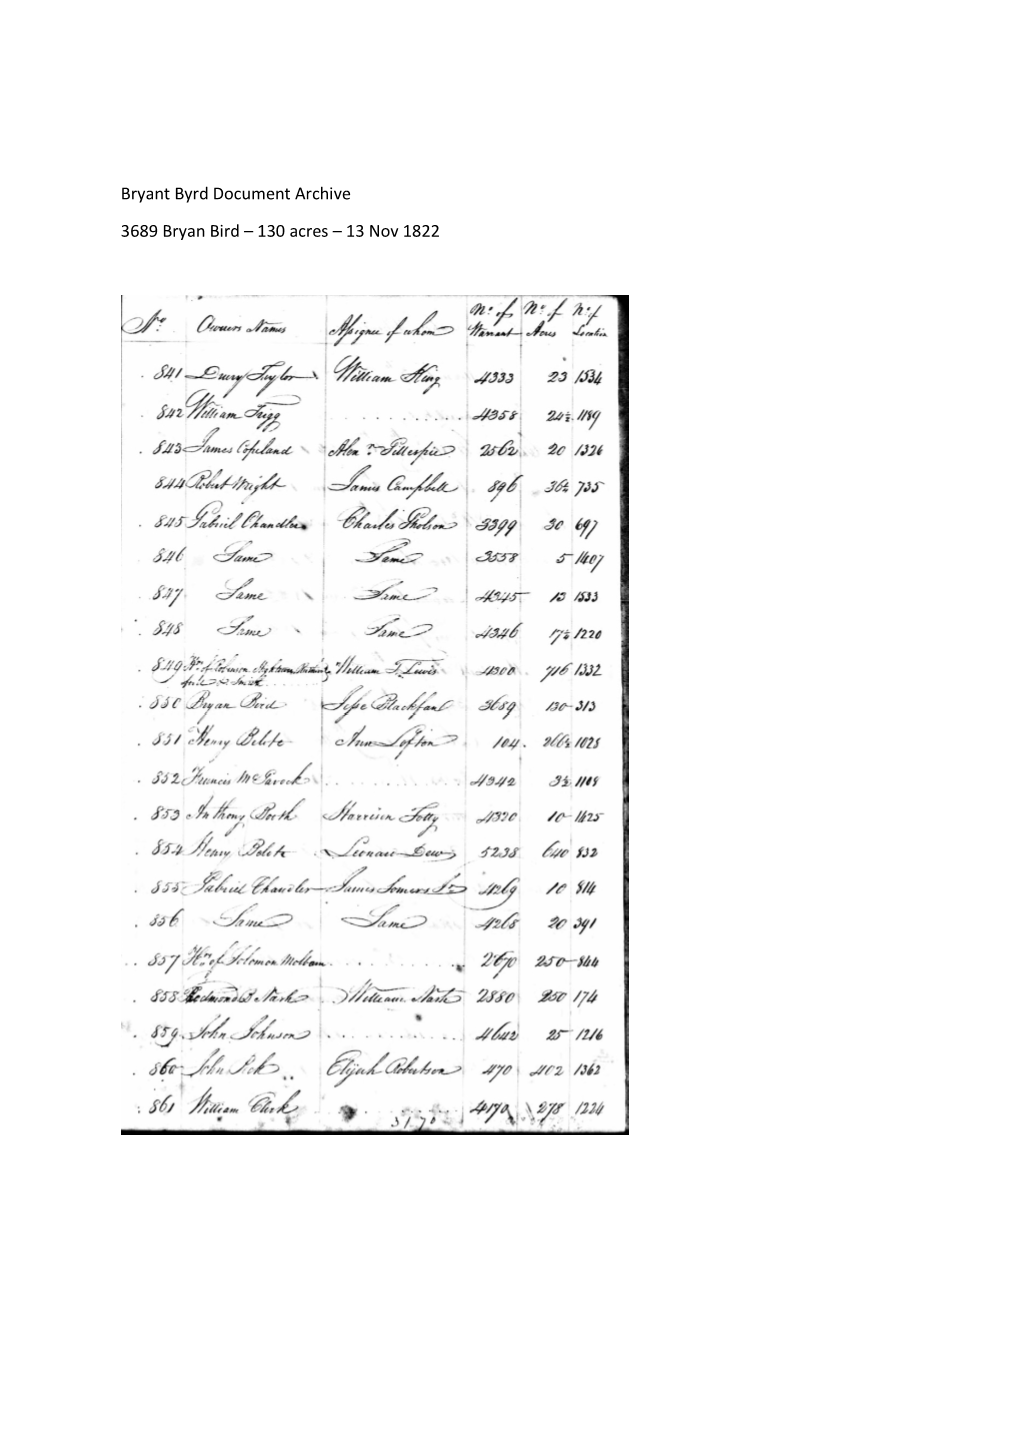 Bryant Byrd Document Archive
3689 Bryan Bird – 130 acres – 13 Nov 1822
No. Owners Names Assignee of whom No. of Warrant No. of Acres No. of Location
841 Drury Taylor William King 4333 23 1534
842 William Trigg 4358 24½ 1189
843 James Copeland Alexr. Gillespie 2562 20 1326
844 Robert Wright James Campbell 896 36½ 735
845 Gabriel Chandler Charles Gholson 3399 30 697
846 Same Same 3558 5 1407
847 Same Same 4345 13 1533
848 Same Same 4346 17½ 1220
849 Hrs. of Robinson William T. Lewis 4300 716 1332
850 Bryan Bird Jesse Blackfan 3689 130 313
851 Henry Belote Ann Lofton 104 266½ 1025
852 Francis McGavock 4342 3½ 1108
853 Anthony Booth Harrison 4320 10 1425
854 Henry Belote Leonard Dew 5238 640 832
855 Gabriel Chandler James Somers Sr. 4269 10 814
856 Same Same 4268 20 391
857 Hrs. of Solomon 2670 250 844
858 Redmond B Nash William Nash 2880 250 174
859 John Johnson 4642 25 1216
860 John Elijah Robertson 470 402 1362
861 William Clark 4170 278 1224